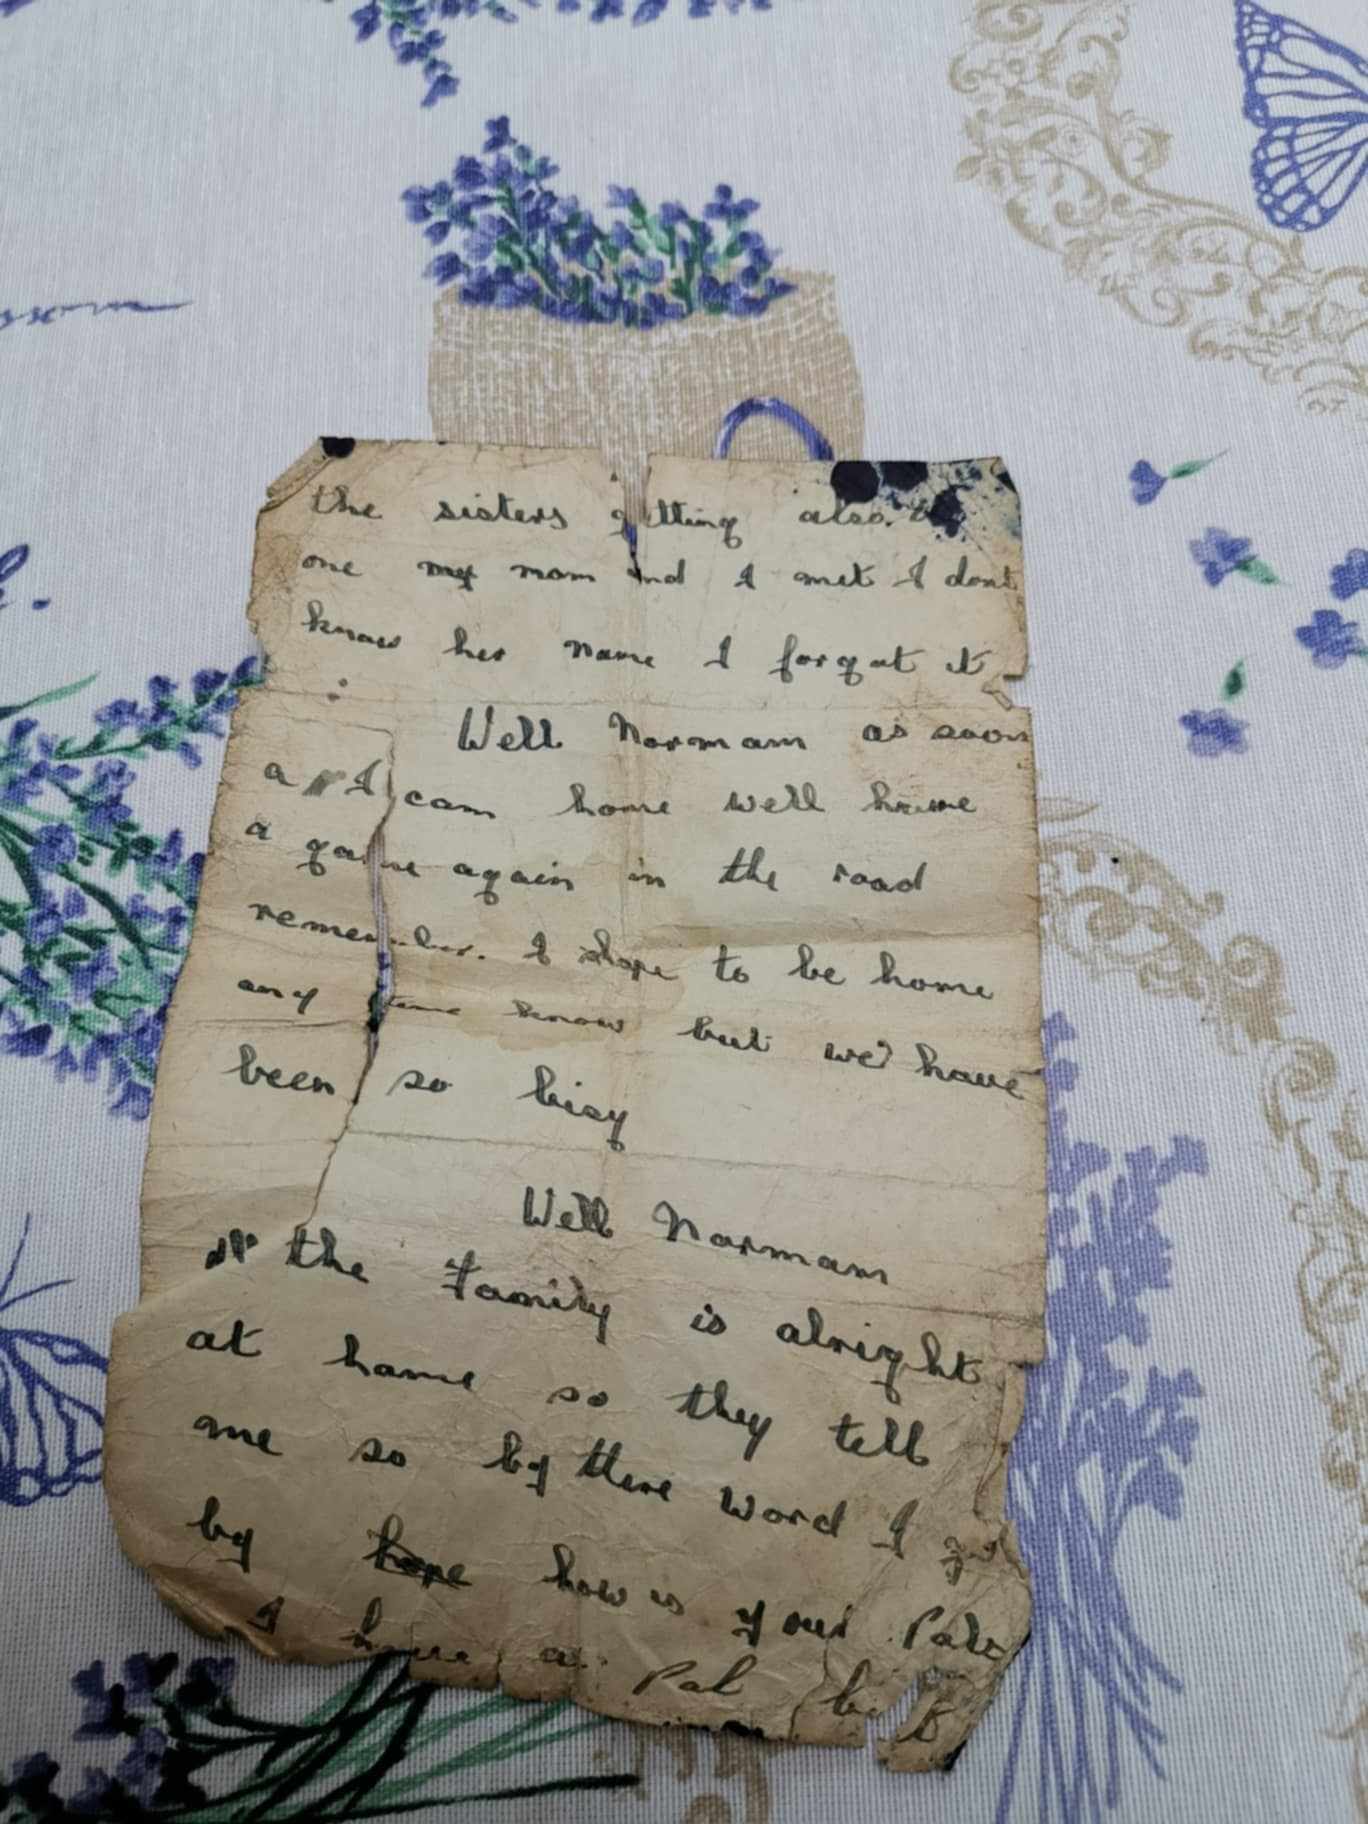 the sisters getting also.
one my mom and I met I dont
know her name I forgat it
Well Normam as soon
a I cam home well have
a game again in the road
remember. I shope to be home
any time know but we have
been so bisy
Well Normam
the Family is alright
at hame so they tell
me so by there word I
by hope how is your Pals
I have a Pal